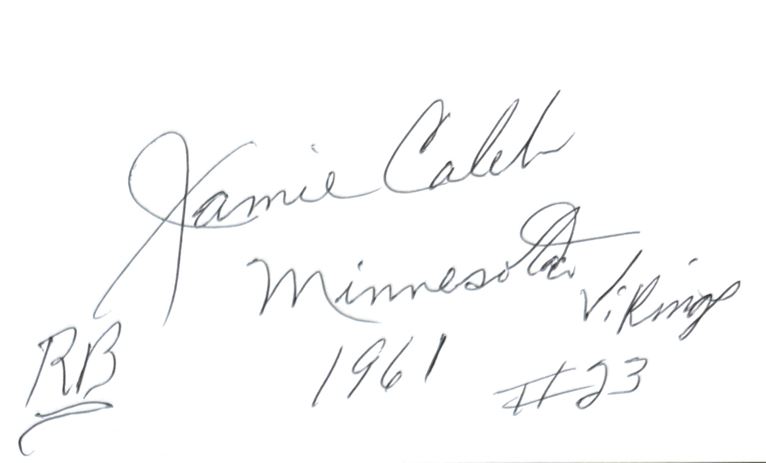 Jamie Caleb
Minnesota Vikings
RB 1961 #23